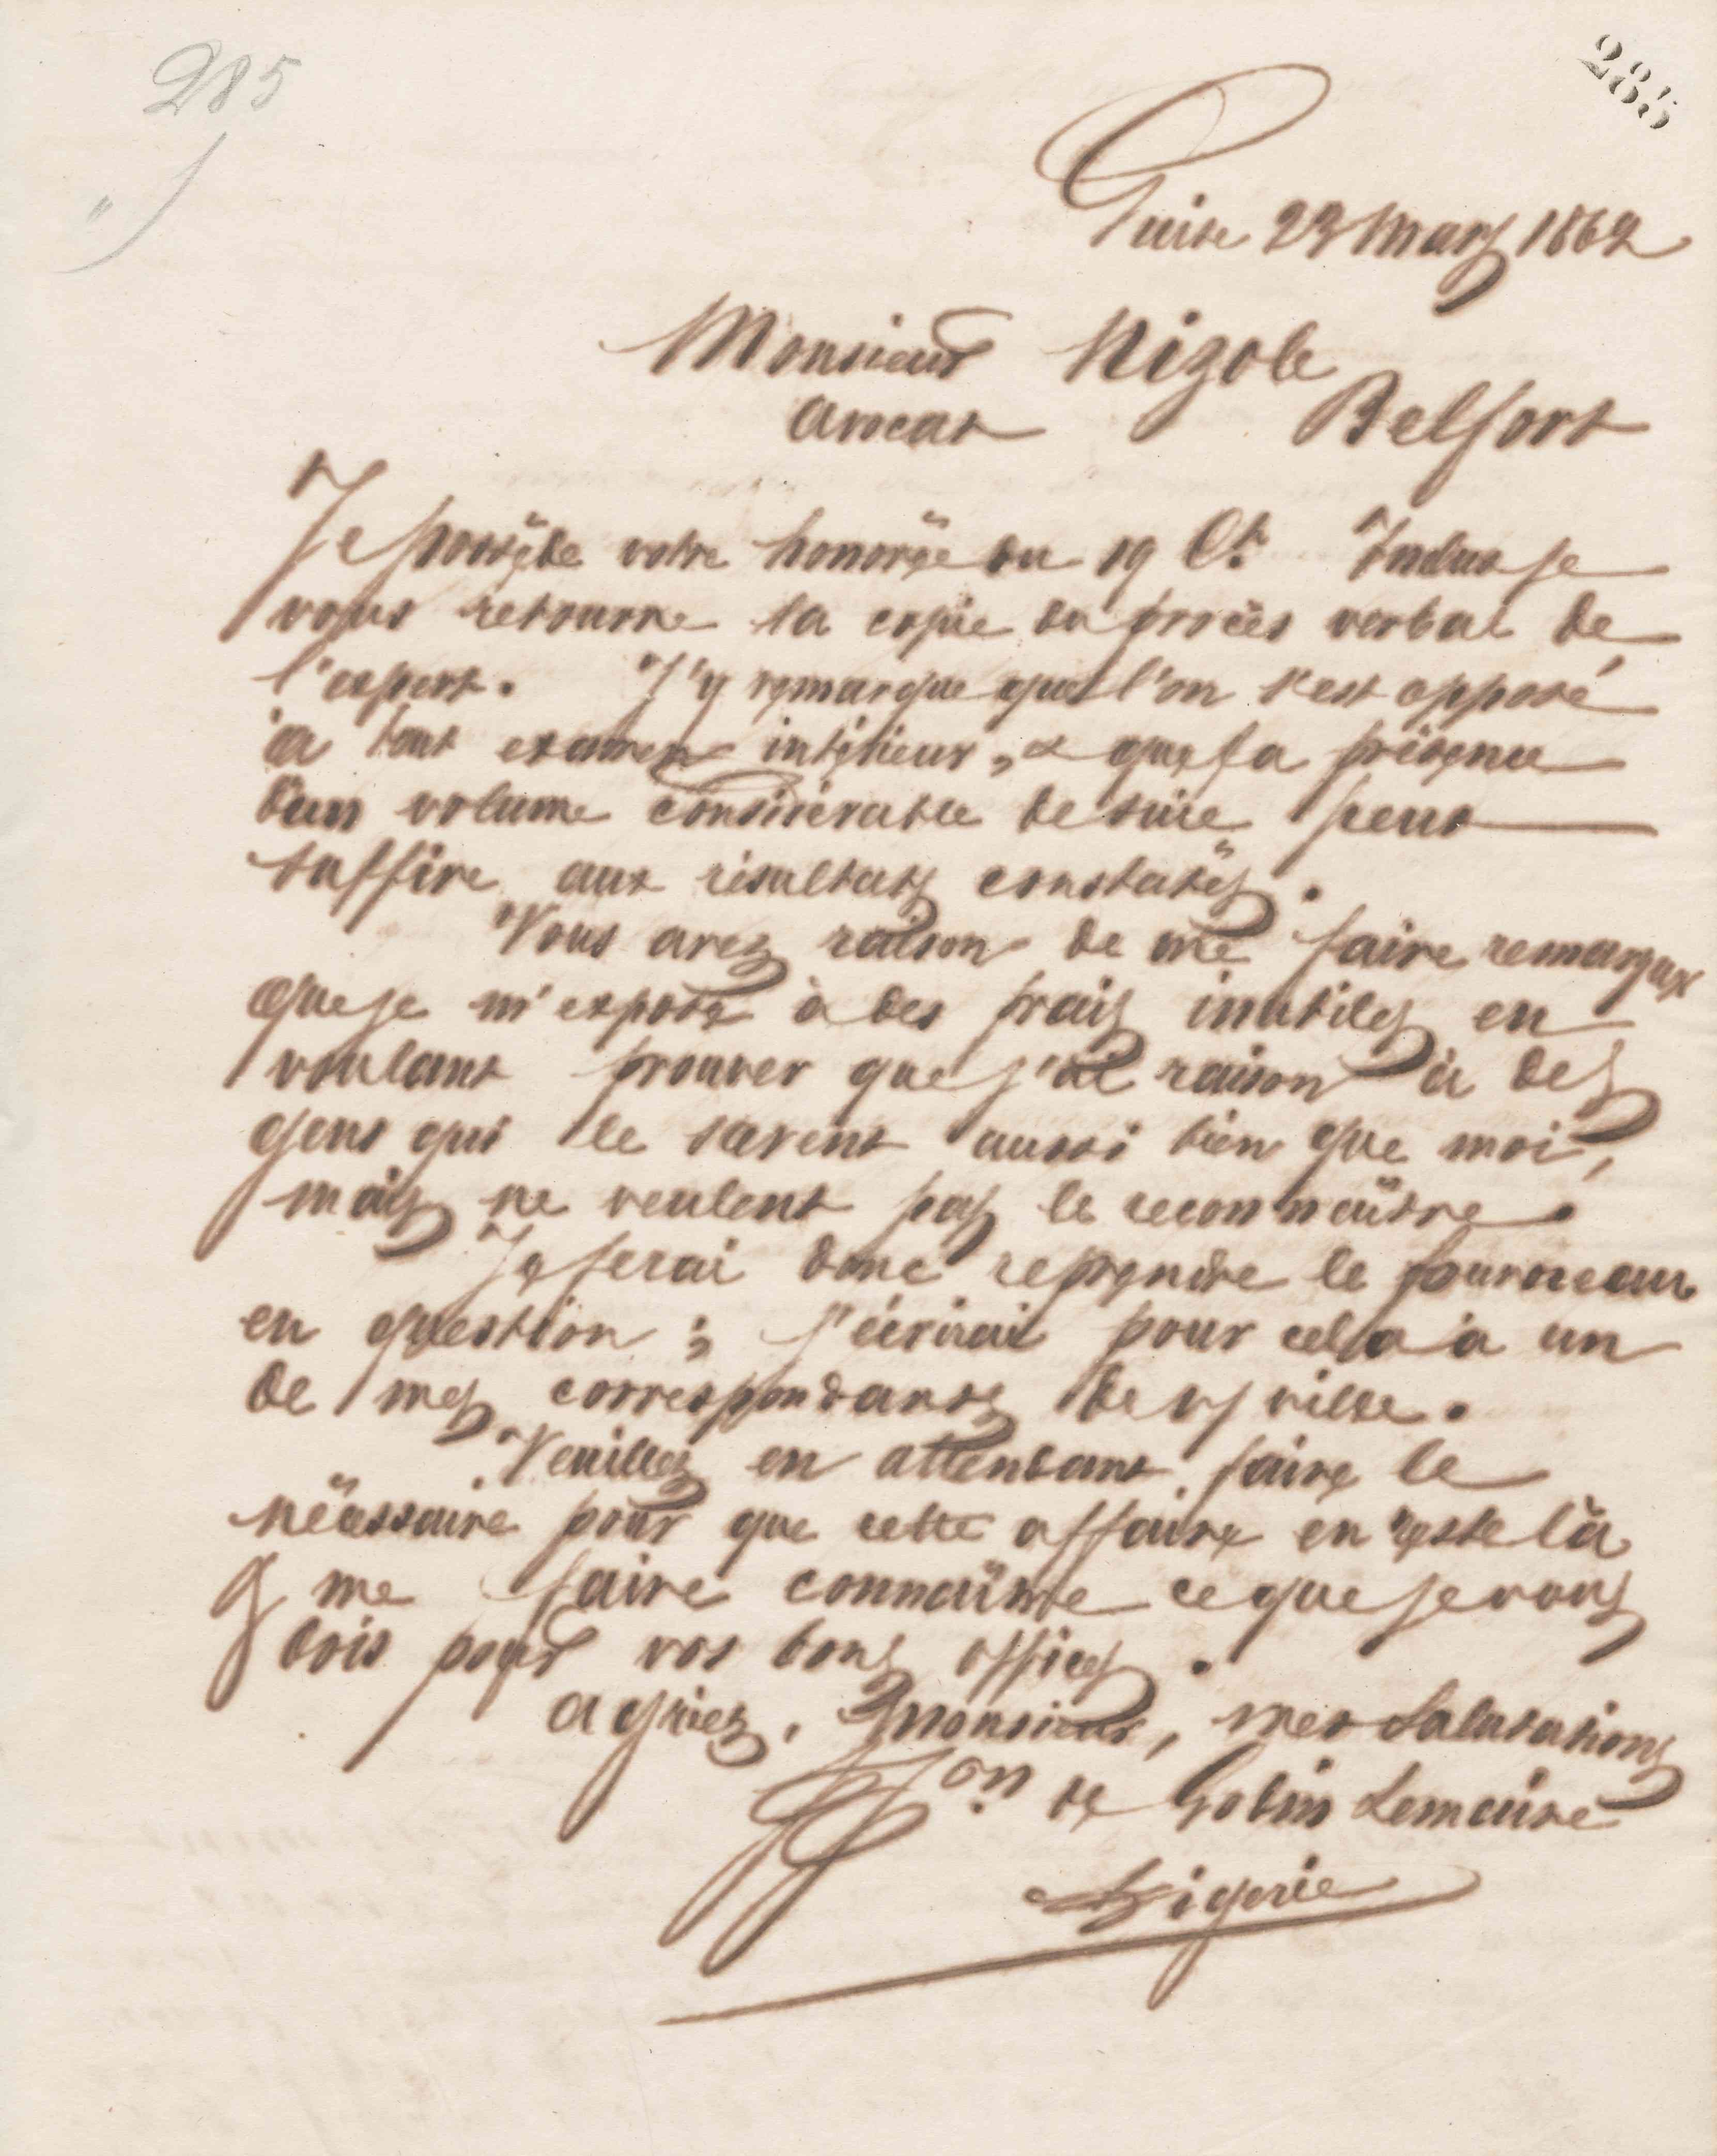 285
285
Guise 23 mars 1862
Monsieur Nizole
avocat Belfort
Je possède votre honorée du 19 Ct. Inclus je
vous retourne la copie du procès verbal de
l'expert. J'y remarque que l'on s'est opposé
à tout examen intérieur, & que la présence
d'un volume considérable de suie peut
suffire aux résultats constatés.
Vous avez raison de me faire remarquer
que je m'expose à des frais inutiles en
voulant prouver que j'ai raison à des
gens qui le savent aussi bien que moi,
mais ne veulent pas le reconnaître.
Je ferai donc reprendre le fourneau
en question ; j'écrirai pour cela à un
de mes correspondants de vs ville.
Veuillez en attendant faire le
nécessaire pour que cette affaire en reste là
& me faire connaître ce que je vous
dois pour vos bons offices.
agréez, Monsieur, mes salutations
Pon. de Godin Lemaire